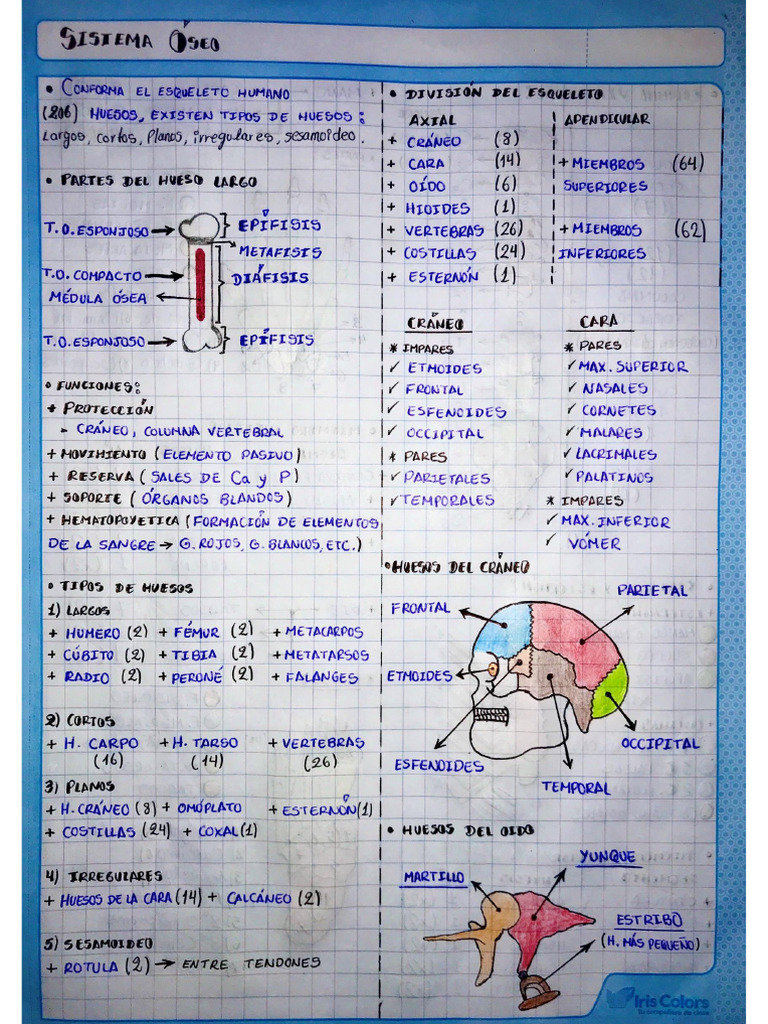 SISTEMA ÓSEO
• CONFORMA EL ESQUELETO HUMANO
(206) HUESOS, EXISTEN TIPOS DE HUESOS:
Largos, cortos, Planos, irregulares, sesamoideo.
• PARTES DEL HUESO LARGO
T.O.ESPONJOSO → EPÍFISIS
METAFISIS
T.O.COMPACTO → DIÁFISIS
MÉDULA ÓSEA ←
T.O.ESPONJOSO → EPÍFISIS
• FUNCIONES:
+ PROTECCIÓN
- CRÁNEO, COLUMNA VERTEBRAL
+ MOVIMIENTO (ELEMENTO PASIVO)
+ RESERVA (SALES DE Ca y P)
+ SOPORTE (ÓRGANOS BLANDOS)
+ HEMATOPOYETICA (FORMACIÓN DE ELEMENTOS
DE LA SANGRE → G. ROJOS, G. BLANCOS, ETC.)
• TIPOS DE HUESOS
1) LARGOS
+ HUMERO (2) + FÉMUR (2) + METACARPOS
+ CÚBITO (2) + TIBIA (2) + METATARSOS
+ RADIO (2) + PERONÉ (2) + FALANGES
2) CORTOS
+ H. CARPO + H. TARSO + VERTEBRAS
(16) (14) (26)
3) PLANOS
+ H. CRÁNEO (8) + OMÓPLATO + ESTERNÓN (1)
+ COSTILLAS (24) + COXAL (1)
4) IRREGULARES
+ HUESOS DE LA CARA (14) + CALCÁNEO (2)
5) SESAMOIDEO
+ ROTULA (2) → ENTRE TENDONES
• DIVISIÓN DEL ESQUELETO
AXIAL APENDICULAR
+ CRÁNEO (8)
+ CARA (14) + MIEMBROS (64)
+ OÍDO (6) SUPERIORES
+ HIOIDES (1)
+ VERTEBRAS (26) + MIEMBROS (62)
+ COSTILLAS (24) INFERIORES
+ ESTERNÓN (1)
CRÁNEO CARA
* IMPARES * PARES
✓ ETMOIDES ✓ MAX. SUPERIOR
✓ FRONTAL ✓ NASALES
✓ ESFENOIDES ✓ CORNETES
✓ OCCIPITAL ✓ MALARES
* PARES ✓ LACRIMALES
✓ PARIETALES ✓ PALATINOS
✓ TEMPORALES * IMPARES
✓ MAX. INFERIOR
✓ VÓMER
• HUESOS DEL CRÁNEO
PARIETAL
FRONTAL
ETMOIDES
OCCIPITAL
ESFENOIDES
TEMPORAL
• HUESOS DEL OIDO
YUNQUE
MARTILLO
ESTRIBO
(H. MÁS PEQUEÑO)
Iris Colors
Tu compañera de clase